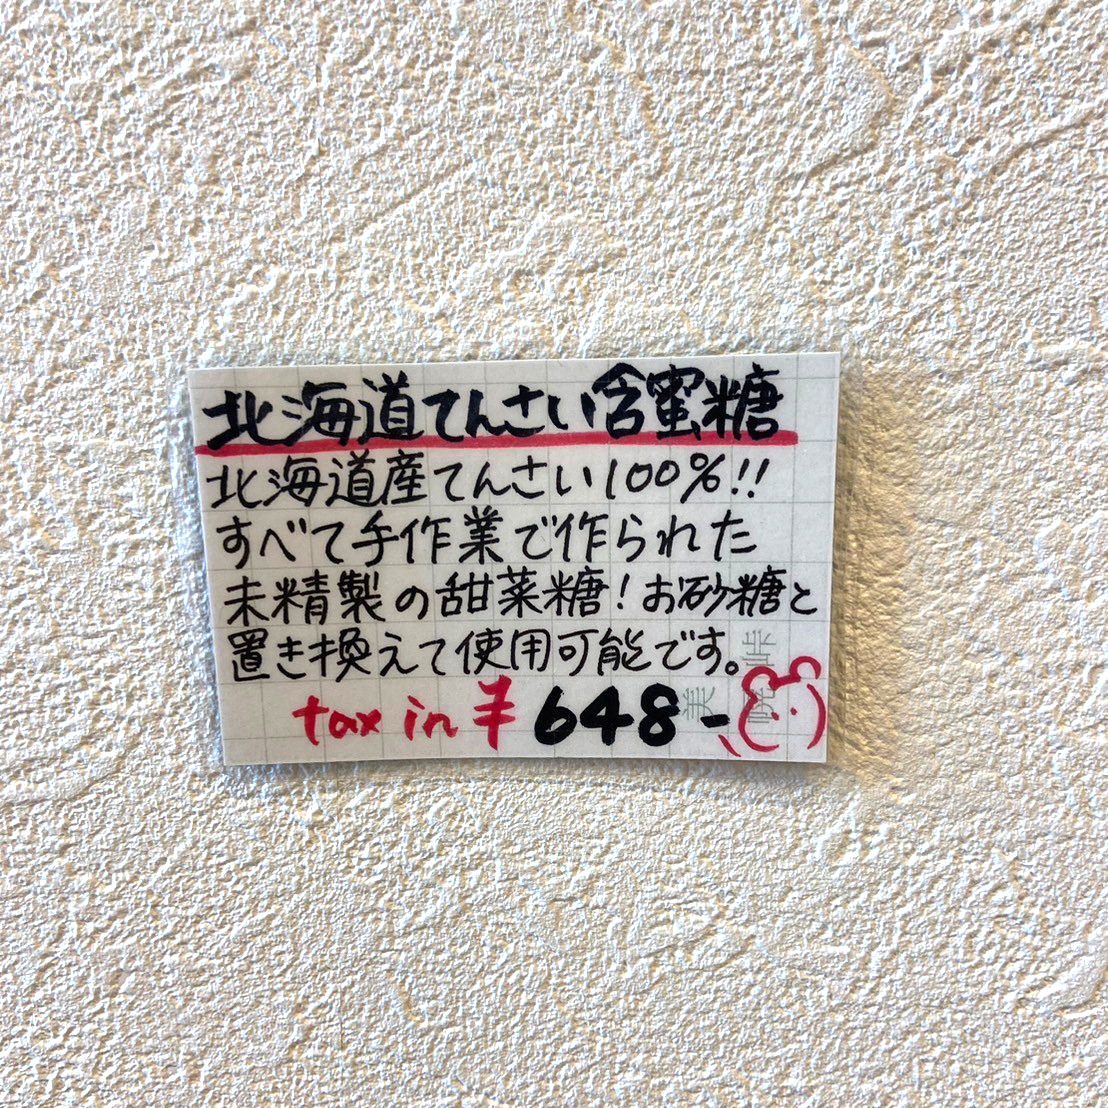 北海道てんさい含蜜糖
北海道産てんさい100%!!
すべて手作業で作られた
未精製の甜菜糖!お砂糖と
置き換えて使用可能です。
tax in ¥648-